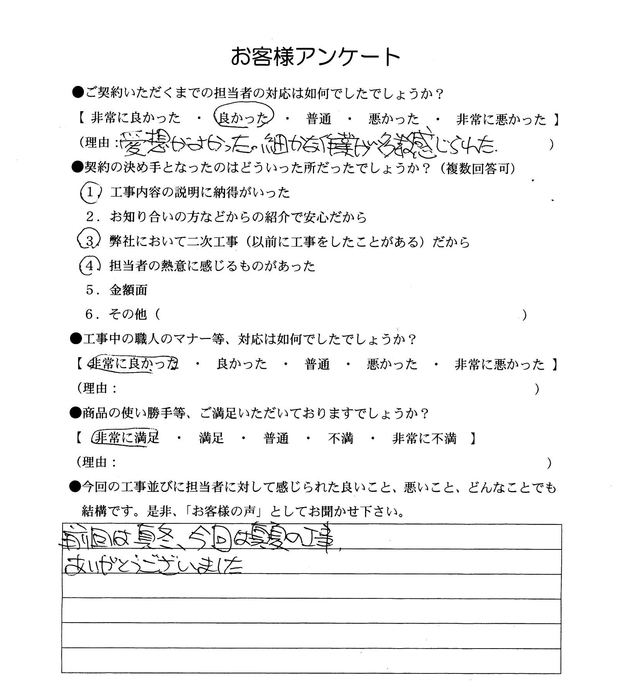 お客様アンケート
●ご契約いただくまでの担当者の対応は如何でしたでしょうか？
【 非常に良かった ・ 良かった ・ 普通 ・ 悪かった ・ 非常に悪かった 】
（理由：愛想がよかった。細かな 感じられた. ）
●契約の決め手となったのはどういった所だったでしょうか？（複数回答可）
１．工事内容の説明に納得がいった
２．お知り合いの方などからの紹介で安心だから
３．弊社において二次工事（以前に工事をしたことがある）だから
４．担当者の熱意に感じるものがあった
５．金額面
６．その他（ ）
●工事中の職人のマナー等、対応は如何でしたでしょうか？
【 非常に良かった ・ 良かった ・ 普通 ・ 悪かった ・ 非常に悪かった 】
（理由： ）
●商品の使い勝手等、ご満足いただいておりますでしょうか？
【 非常に満足 ・ 満足 ・ 普通 ・ 不満 ・ 非常に不満 】
（理由： ）
●今回の工事並びに担当者に対して感じられた良いこと、悪いこと、どんなことでも
結構です。是非、「お客様の声」としてお聞かせ下さい。
前回は真冬、今回は真夏の工事、
ありがとうございました